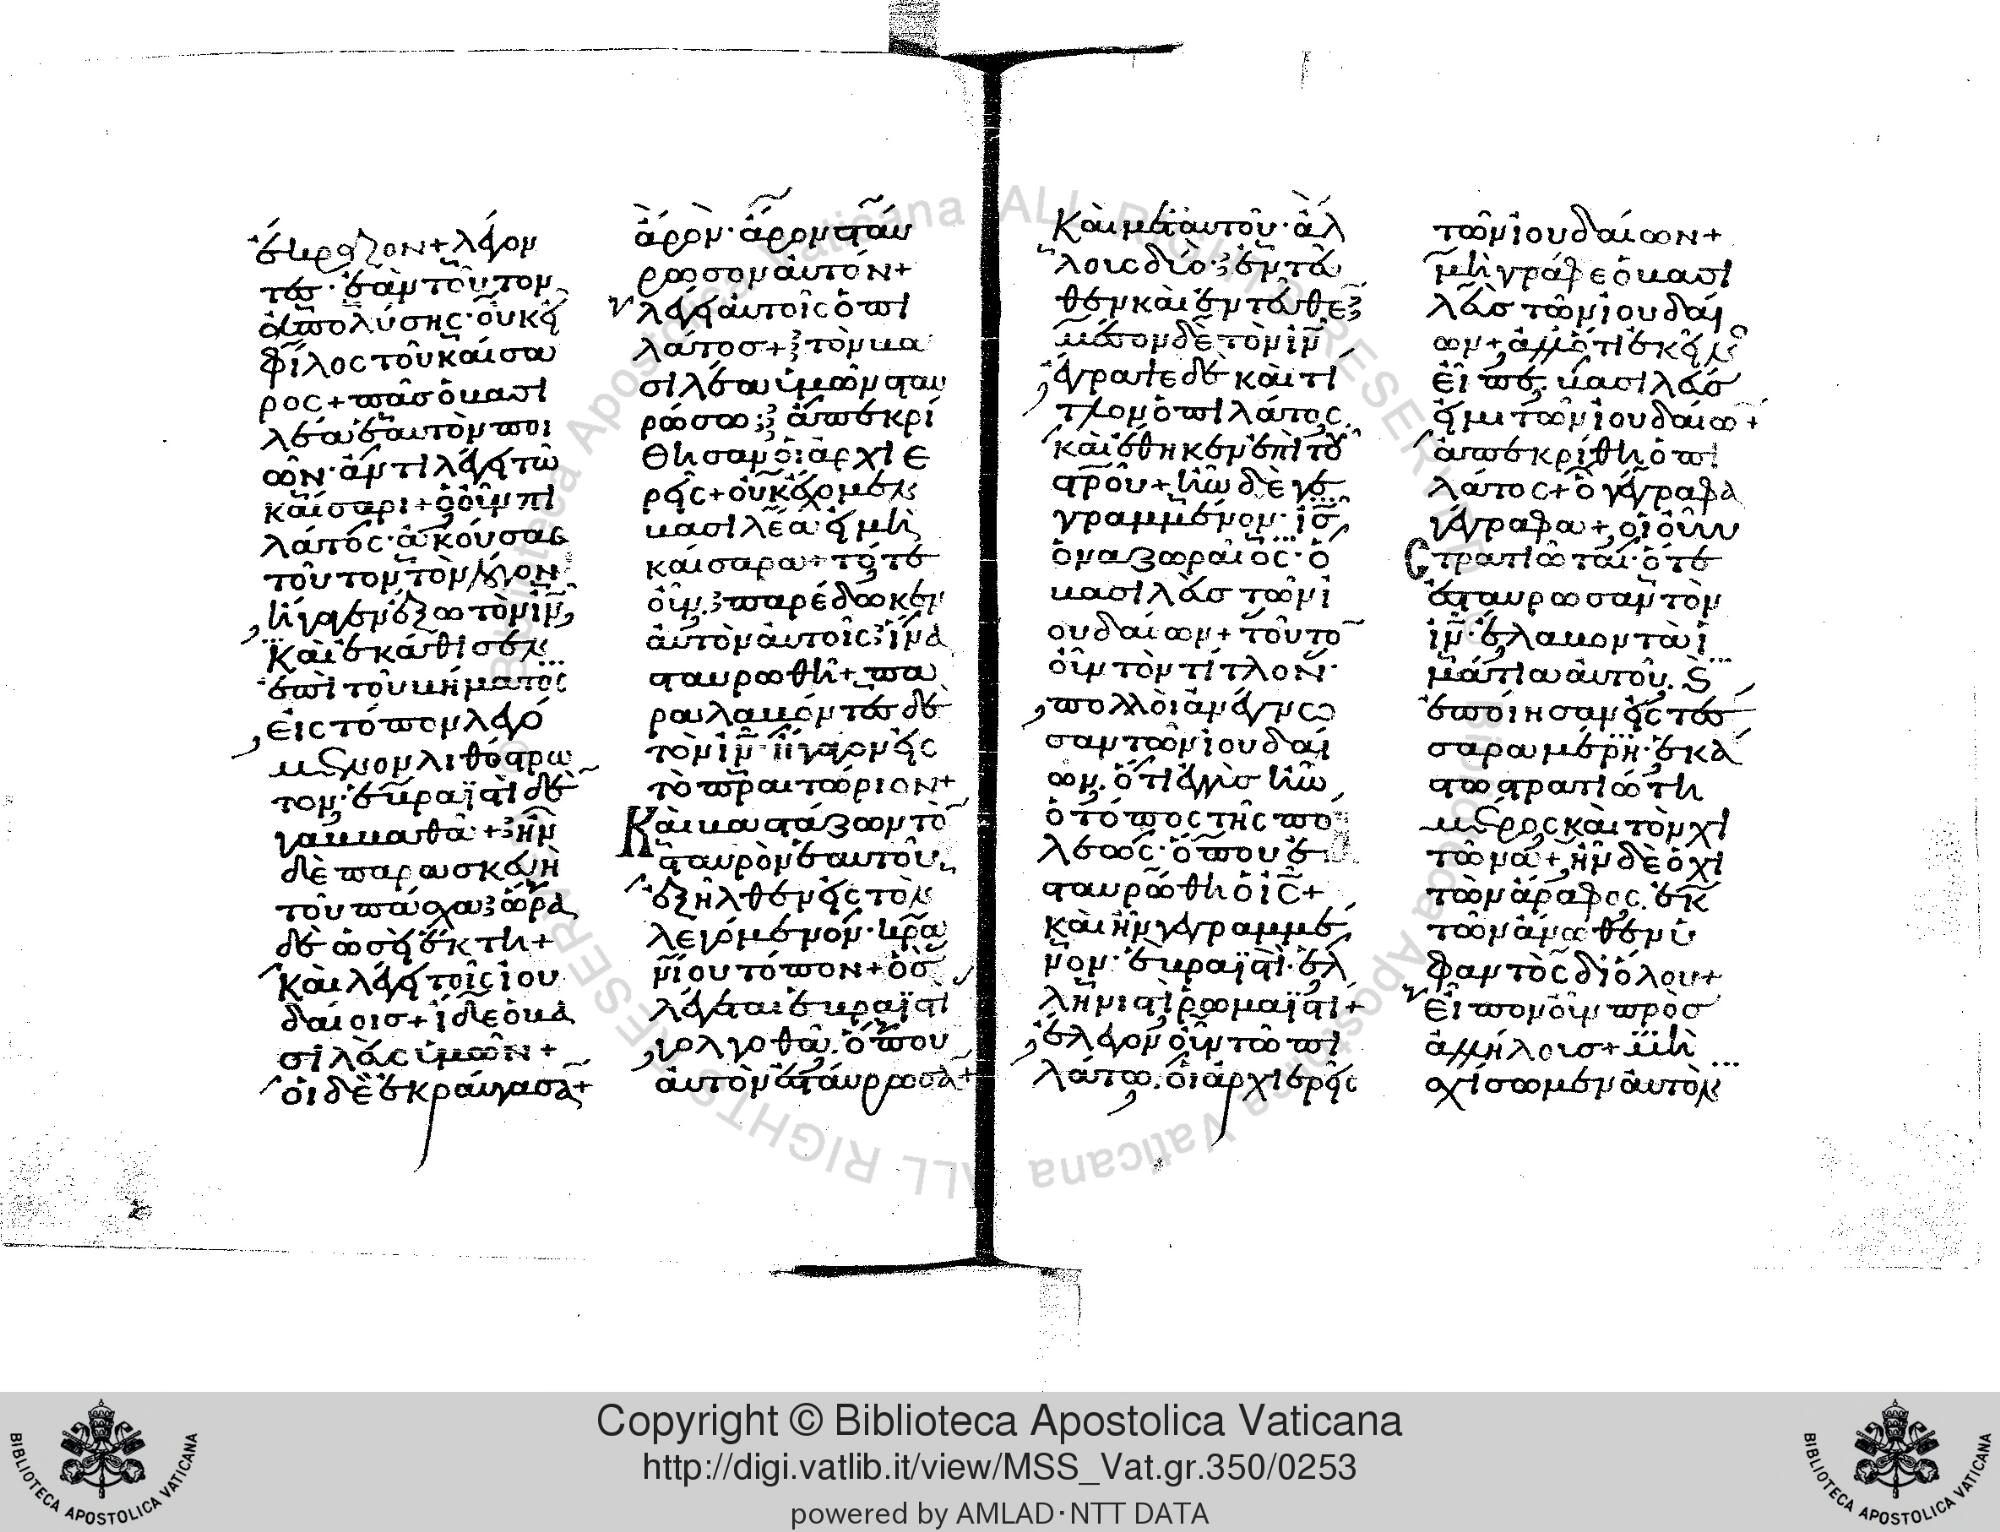 ἔκραζον + λέγον
τες · ἐὰν τοῦτον
ἀπολύσης · οὐκ εῖ
φίλος τοῦ καίσα
ρος + πᾶς ὁ βασι
λέα ἑαυτὸν ποι
ῶν · ἀντιλέγει τῶ
καίσαρι + ὁ οῦν πι
λάτος · ἀκούσας
τοῦτον τὸν λόγον
ἤγαγεν ἔξω τὸν ἰν
Καὶ ἐκάθισεν
ἐπὶ τοῦ βήματος
εἰς τόπον λεγό
μενον λιθόστρω
τον · ἑβραϊστὶ δὲ
γαββαθᾶ + ἦν
δὲ παρασκευὴ
τοῦ πάσχα ὥρα
δὲ ὡσεὶ ἕκτη +
Καὶ λέγει τοῖς ἰου
δαίοις + ἴδε ὁ βα
σιλεὺς ὑμῶν +
οἱ δὲ ἐκραύγασαν +
ἆρον · ἆρον σταύ
ρωσον αὐτόν +
λέγει αὐτοῖς ὁ πι
λάτος + τὸν βα
σιλέα ὑμῶν σταυ
ρώσω ; ἀπεκρί
θησαν οἱ ἀρχιε
ρεῖς + οὐκ ἔχομεν
βασιλέα εἰ μὴ
καίσαρα + τότε
οῦν παρέδωκεν
αὐτὸν αὐτοῖς ἵνα
σταυρωθῆ + πα
ραλαβόντες δὲ
τὸν ἰν ἤγαγον εἰς
τὸ πραιτώριον +
Καὶ βαστάζων τὸν
σταυρὸν ἑαυτοῦ
ἐξῆλθεν εἰς τὸν
λεγόμενον · κρα
νίου τόπον + ὃς
λέγεται ἑβραϊστὶ
γολγοθᾶ . ὅπου
αὐτὸν ἐσταύρωσαν +
Καὶ μετ αὐτοῦ · ἄλ
λους δύο · ἐντεῦ
θεν καὶ ἐντεῦθεν
μέσον δὲ τὸν ἰν
ἔγραψε δὲ καὶ τί
τλον ὁ πιλάτος .
καὶ ἔθηκεν ἐπὶ τοῦ
στροῦ + ἦν δὲ γε
γραμμένον · ἰς
ὁ ναζωραῖος · ὁ
βασιλεὺς τῶν ἰ
ουδαίων + τοῦτον
οῦν τὸν τίτλον ·
πολλοὶ ἀνέγνω
σαν τῶν ἰουδαί
ων . ὅτι ἐγγὺς ἦν
ὁ τόπος τῆς πό
λεως · ὅπου ἐ
σταυρώθη ὁ ις +
καὶ ἦν γεγραμμέ
νον · ἑβραϊστὶ · ἑλ
ληνιστὶ ῥωμαϊστί +
ἔλεγον οῦν τῶ πι
λάτω . οἱ ἀρχιερεῖς
τῶν ἰουδαίων +
μὴ γράφε ὁ βασι
λεὺς τῶν ἰουδαί
ων + ἀλλ ὅτι ἐκεῖνος
εἶπε · βασιλεύς
εἰμι τῶν ἰουδαίων +
ἀπεκρίθη ὁ πι
λάτος + ὃ γέγραφα
γέγραφα + οἱ οῦν
Στρατιῶται · ὅτε
ἐσταύρωσαν τὸν
ἰν · ἔλαβον τὰ ἱ
μάτια αὐτοῦ . Καὶ
ἐποίησαν εἰς τέσ
σαρα μέρη · ἑκά
στω στρατιώτη
μέρος καὶ τὸν χι
τῶνα + ἦν δὲ ὁ χι
τὼν ἄραφος . ἐκ
τῶν ἄνωθεν ὑ
φαντὸς δι ὅλου +
Εἶπον οῦν πρὸς
ἀλλήλους + μὴ
σχίσωμεν αὐτὸν
Copyright © Biblioteca Apostolica Vaticana
http://digi.vatlib.it/view/MSS_Vat.gr.350/0253
powered by AMLAD·NTT DATA